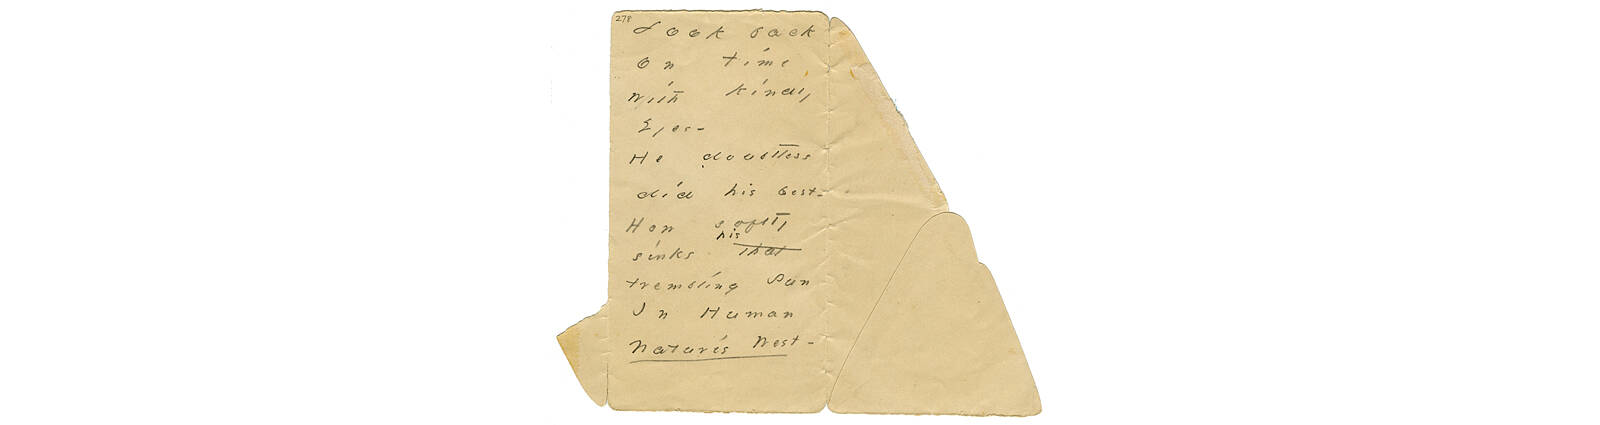 278
Look back
On time
With kindly
Eyes –
He doubtless
did his best –
How softly
his
sinks that
trembling Sun
In Human
Nature's West –